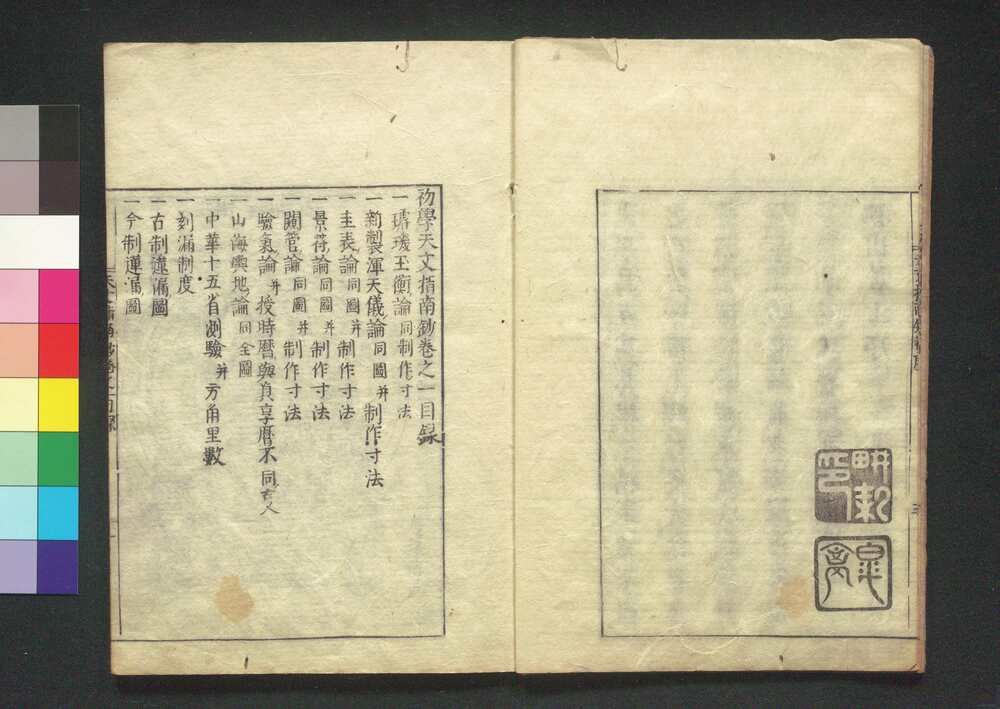 初學天文指南鈔卷之一目録
一 璿璣玉衡論 同制作寸法
一 新製渾天儀論 同圖 并 制作寸法
一 圭表論 同圖 并 制作寸法
一 景符論 同圖 并 制作寸法
一 闚管論 同圖 并 制作寸法
一 驗氣論 并 授時曆與貞享曆不同
一 山海輿地論 同全圖
一 中華十五省測驗 并 方角里數
一 刻漏制度
一 古制蓮漏圖
一 今制蓮漏圖